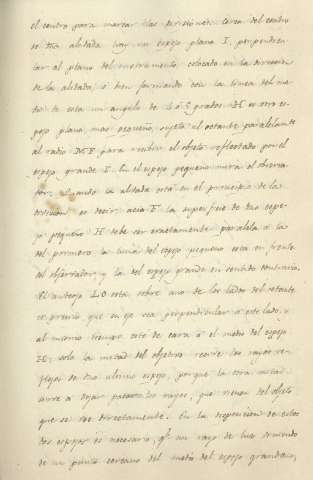 el centro para marcar las divisiones. Cerca del centro
de dha alidada hay un espejo plano I, perpendicu-
lar al plano del instrumento colocado en la direccion
de la alidada, ò bien formando con la linea del me-
dio de esta un angulo de 4 ó 5 grados. H es otro es-
pejo plano, mas pequeño, sujeto al octante paralelamte
al radio para recibir el objeto reflectado por el
espejo grande I. En el espejo pequeño mira el observa-
dor. Quando la alidada está en el principio de la
division es decir acia F la superficie de dho espe-
jo pequeño H debe ser exactamente paralela a la
del primero la luna del espejo pequeño esta en frente
del observador, y la del espejo grande en sentido contrario.
El anteojo LO está sobre uno de los lados del octante
es preciso que su eje sea perpendicular a este lado, y
al mismo tiempo este de cara á el medio del espejo
H: solo la mitad del objetivo recive los rayos re-
flejos de dho ultimo espejo, porque la otra mitad
sirve a dejar pasar los rayos, que vienen del objeto
que se vee directamente. En la disposicion de estos
dos espejos es necesario, qe un rayo de luz viniendo
de un punto cercano del medio del espejo grande,